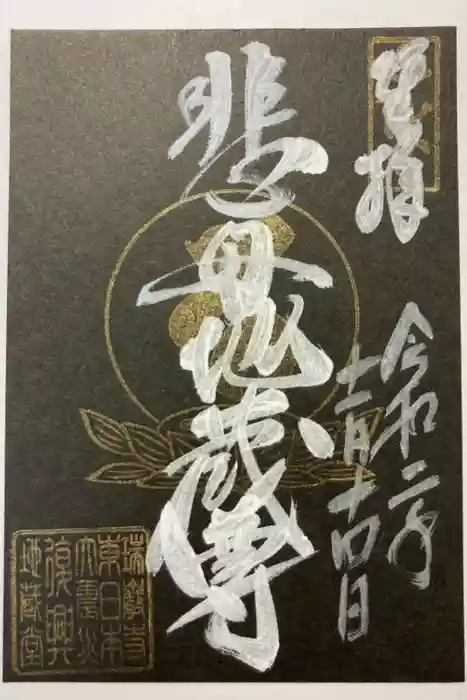 悲母地蔵尊
令和二年
十二月十四日
東日本
大震災
復興
地蔵堂